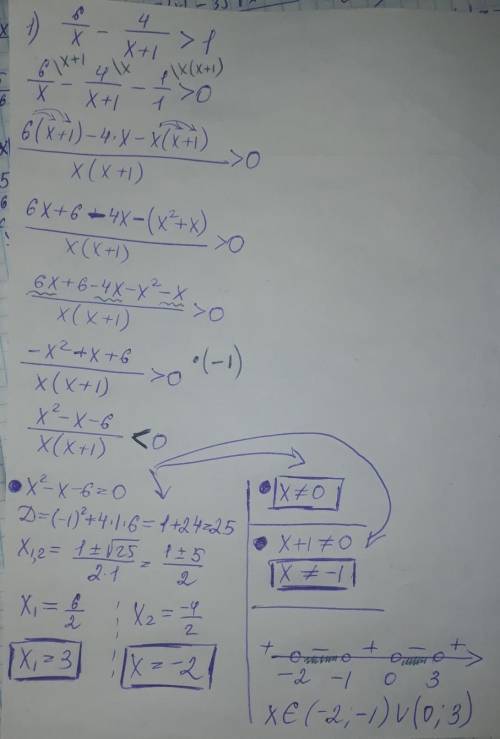 1) 6/x - 4/(x+1) > 1
6/x \x+1 - 4/(x+1) \x - 1/1 \x(x+1) > 0
(6(x+1)-4·x-x(x+1))/(x(x+1)) > 0
(6x+6-4x-(x²+x))/(x(x+1)) > 0
(6x+6-4x-x²-x)/(x(x+1)) > 0
(-x²+x+6)/(x(x+1)) > 0 ·(-1)
(x²-x-6)/(x(x+1)) < 0
• x²-x-6=0
D=(-1)²+4·1·6=1+24=25
x₁,₂ = (1±√25)/(2·1) = (1±5)/2
x₁ = 6/2 x₂ = -4/2
x₁=3 x=-2
• x≠0
• x+1≠0
x≠-1
+ - + - +
-2 -1 0 3
x∈(-2;-1)∪(0;3)